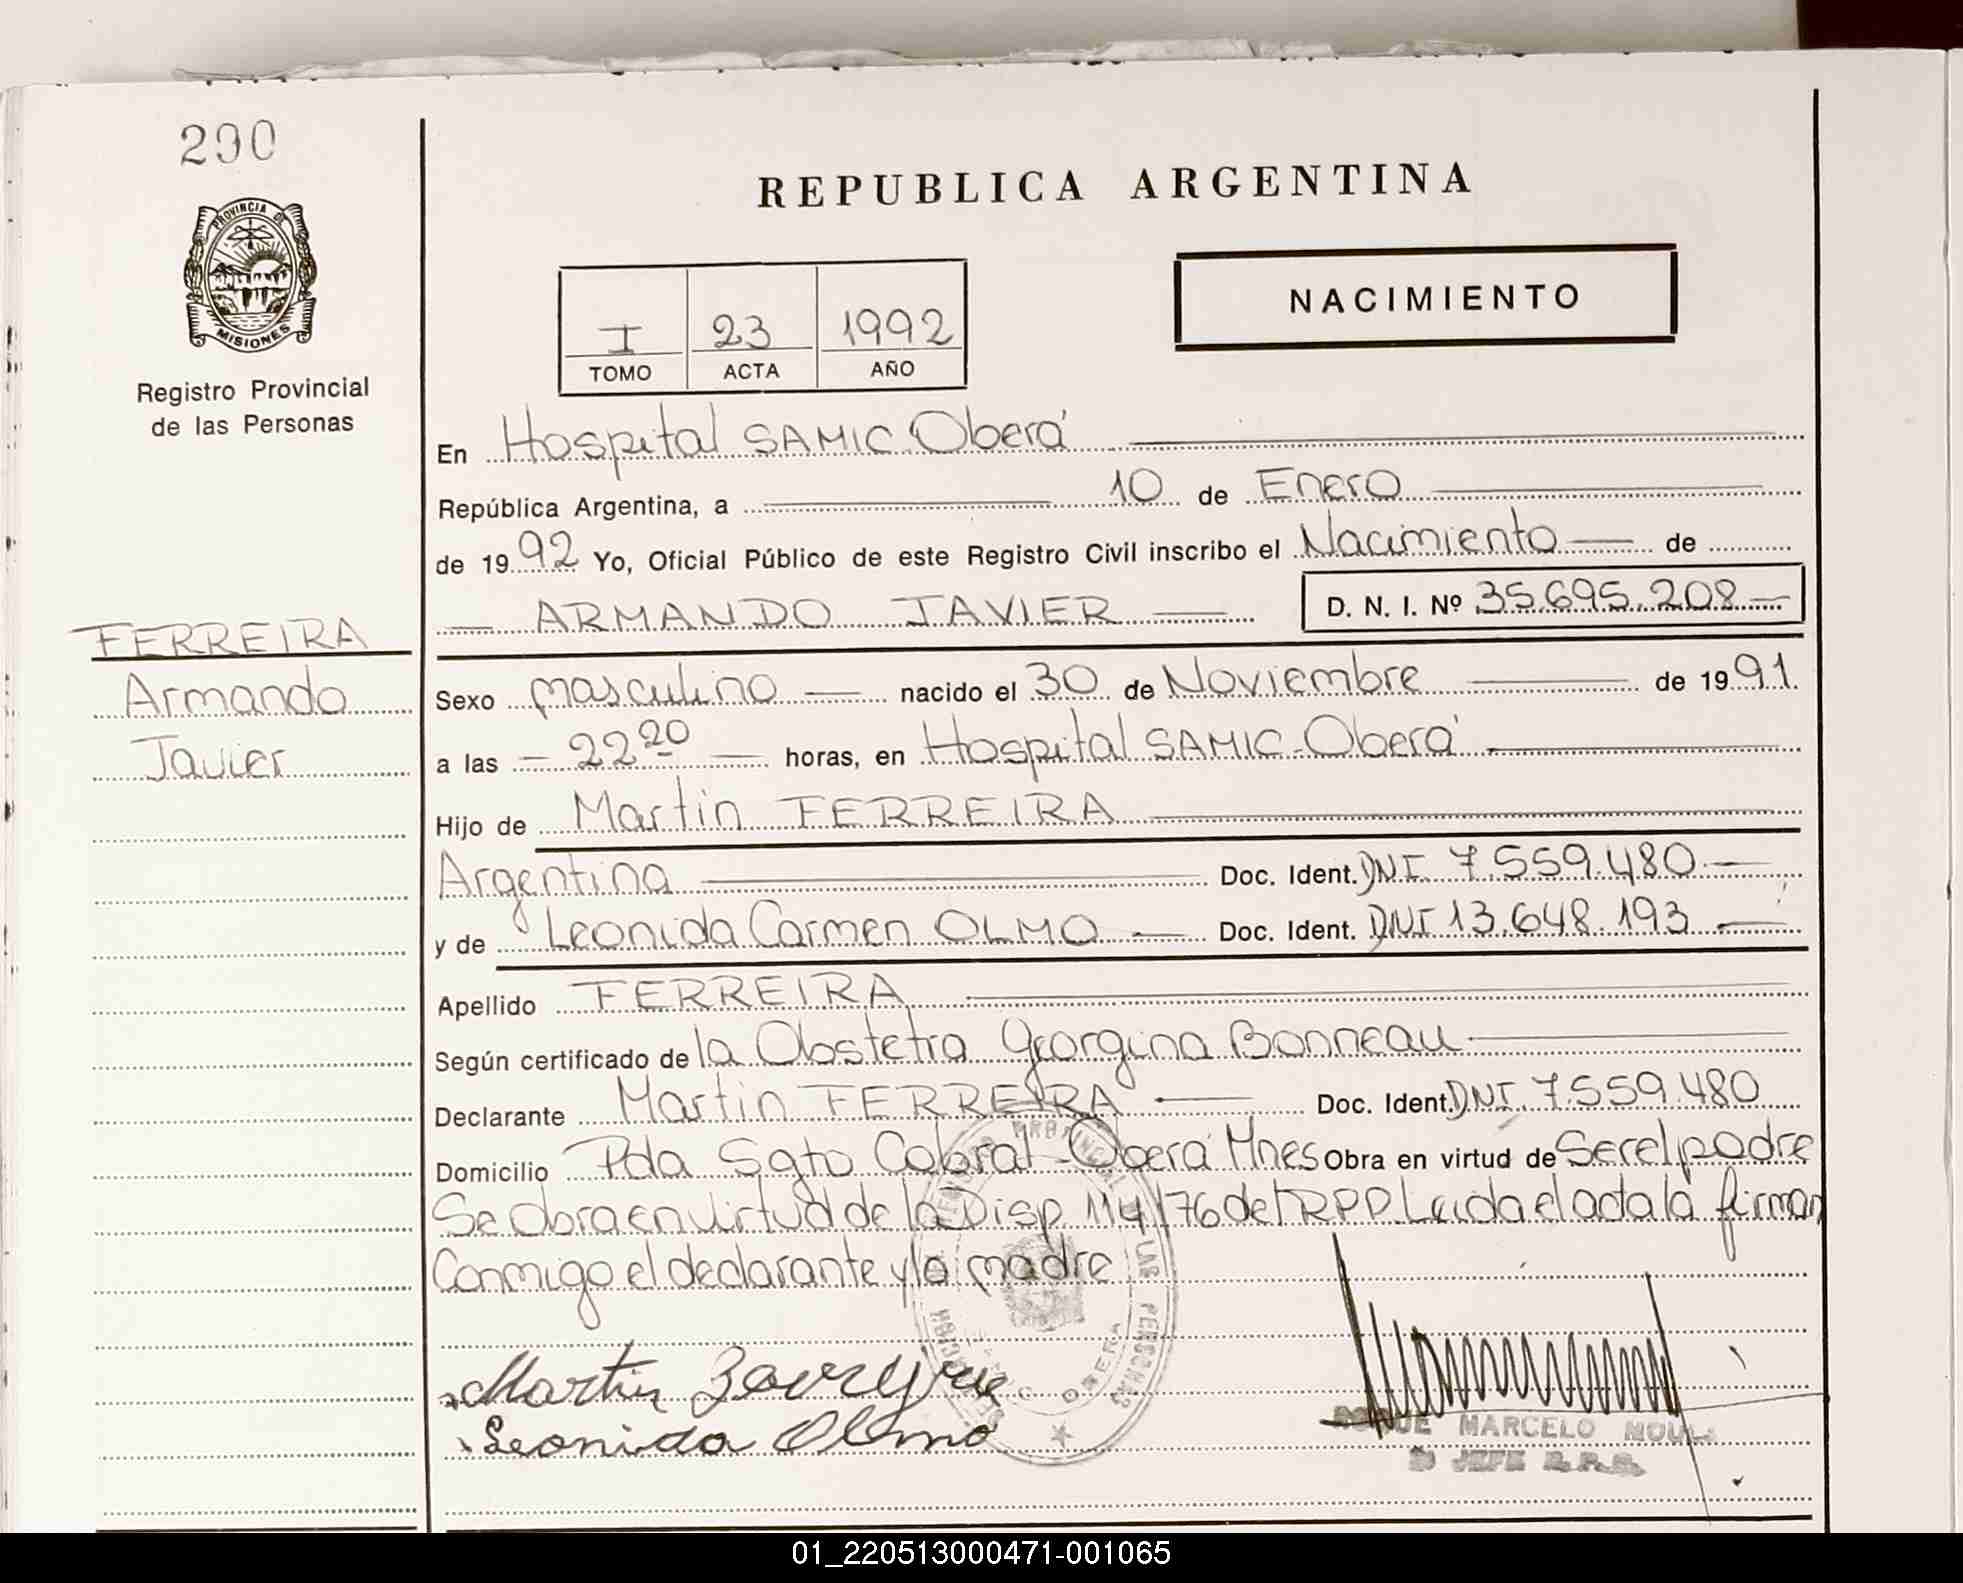 290
PROVINCIA DE
MISIONES
Registro Provincial
de las Personas
REPUBLICA ARGENTINA
I 23 1992
TOMO ACTA AÑO
NACIMIENTO
En Hospital SAMIC Oberá
República Argentina, a 10 de Enero
de 1992 Yo, Oficial Público de este Registro Civil inscribo el Nacimiento de
ARMANDO JAVIER D. N. I. Nº 35.695.208
FERREIRA
Armando
Javier
Sexo masculino nacido el 30 de Noviembre de 1991.
a las 22 20 horas, en Hospital SAMIC-Oberá
Hijo de Martin FERREIRA
Argentina Doc. Ident. DNI. 7.559.480
y de Leonida Carmen OLMO Doc. Ident. DNI 13.648.193
Apellido FERREIRA
Según certificado de la Obstetra Georgina Bonneau
Declarante Martin FERREIRA Doc. Ident. DNI. 7.559.480
Domicilio Pda Sgto Cabral-Oberá Mnes Obra en virtud de Ser el padre
Se obra en virtud de la Disp 114/76 del RPP. Leida el acta la firman
Conmigo el declarante y la madre
Martin
Leonida Olmo
OBERA
MARCELO
JEFE R.P.P.
01_220513000471-001065